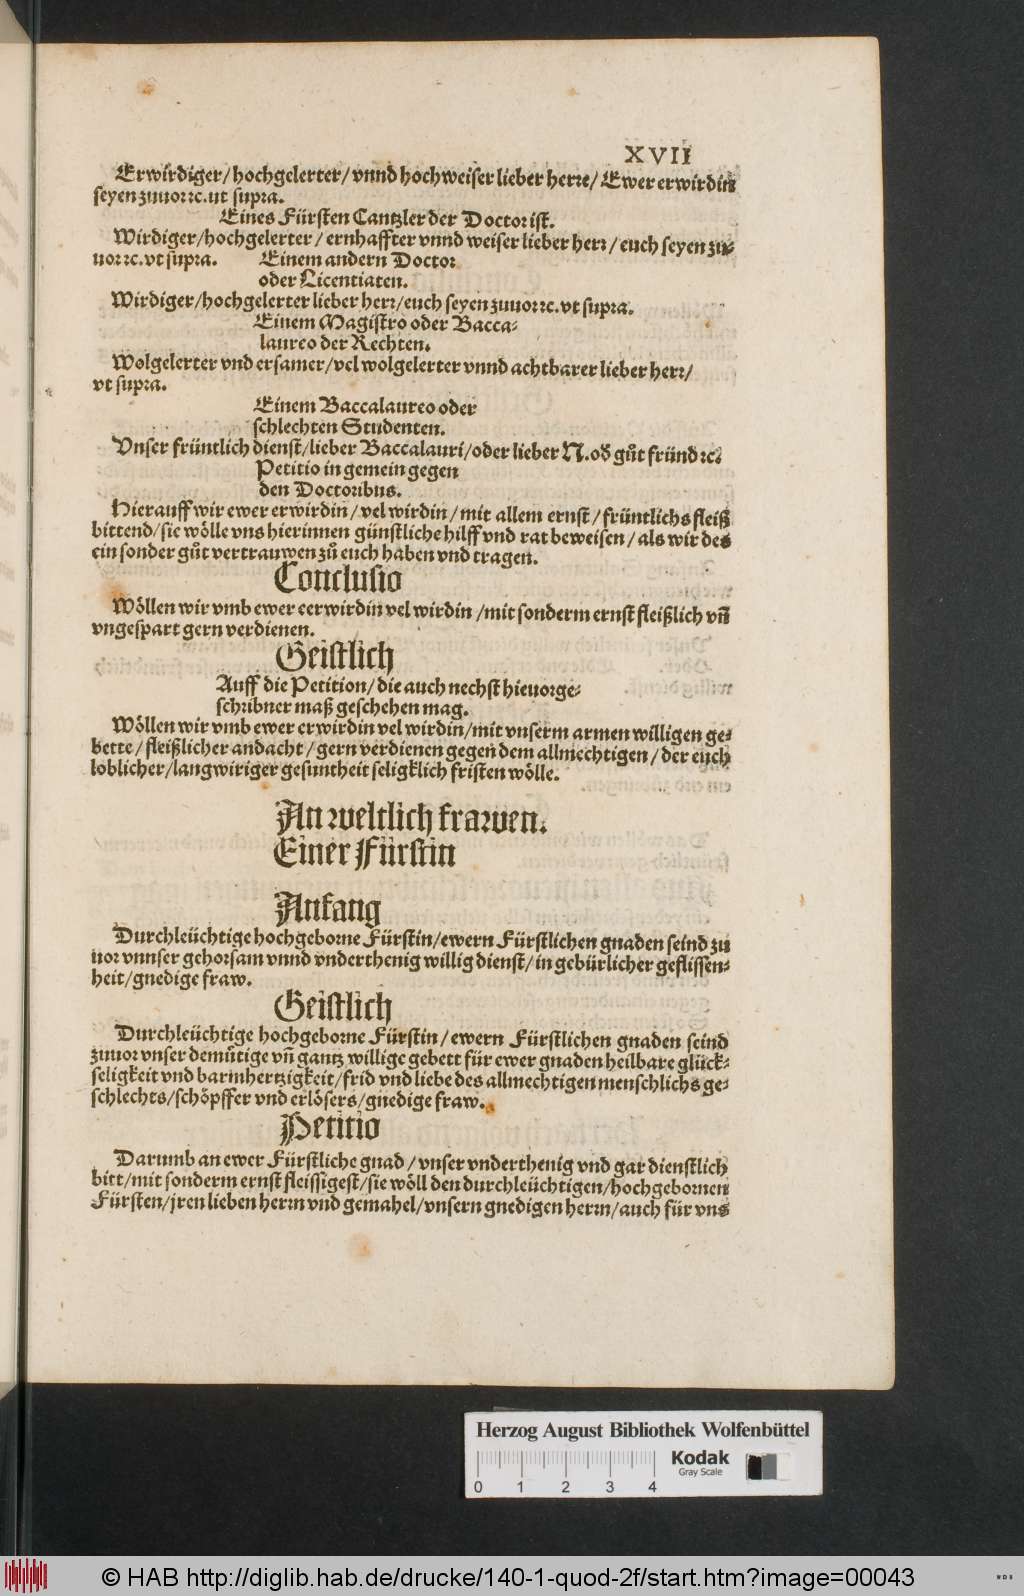 XVII
Erwirdiger/ hochgelerter/ vnnd hochweiser lieber herre/ Ewer erwirdin
seyen zuuor ꝛc. ut supra.
Eines Fürsten Cantzler der Doctor ist.
Wirdiger/hochgelerter / ernhaffter vnnd weiser lieber herr / euch seyen zu-
uor ꝛc. vt supra. Einem andern Doctor
oder Licentiaten.
Wirdiger/hochgelerter lieber herr/euch seyen zuuor ꝛc. vt supra.
Einem Magistro oder Bacca-
laureo der Rechten.
Wolgelerter vnd ersamer/vel wolgelerter vnnd achtbarer lieber herr/
vt supra.
Einem Baccalaureo oder
schlechten Studenten.
Vnser früntlich dienst/lieber Baccalauri/oder lieber N. oď gůt fründ ꝛc.
Petitio in gemein gegen
den Doctoribus.
Hierauff wir ewer erwirdin / vel wirdin / mit allem ernst / früntlichs fleiß
bittend/sie wölle vns hierinnen günstliche hilff vnd rat beweisen / als wir des
ein sonder gůt vertrauwen zů euch haben vnd tragen.
Conclusio
Wöllen wir vmb ewer eerwirdin vel wirdin /mit sonderm ernst fleißlich vñ
vngespart gern verdienen.
Geistlich
Auff die Petition/ die auch nechst hieuorge-
schribner maß geschehen mag.
Wöllen wir vmb ewer erwirdin vel wirdin/mit vnserm armen willigen ge-
bette / fleißlicher andacht / gern verdienen gegen dem allmechtigen / der euch
loblicher/langwiriger gesuntheit seligklich fristen wölle.
An weltlich frawen.
Einer Fürstin
Anfang
Durchleüchtige hochgeborne Fürstin/ewern Fürstlichen gnaden seind zu
uor vnnser gehorsam vnnd vnderthenig willig dienst/ in gebürlicher geflissen-
heit/gnedige fraw.
Geistlich
Durchleüchtige hochgeborne Fürstin / ewern Fürstlichen gnaden seind
zuuor vnser demütige vñ gantz willige gebett für ewer gnaden heilbare glück-
seligkeit vnd barmhertzigkeit/frid vnd liebe des allmechtigen menschlichs ge-
schlechts/schöpffer vnd erlösers/gnedige fraw.
Petitio
Darumb an ewer Fürstliche gnad / vnser vnderthenig vnd gar dienstlich
bitt/mit sonderm ernst fleissigest/sie wöll den durchleüchtigen/hochgebornen
Fürsten/jren lieben herrn vnd gemahel/vnsern gnedigen herrn/auch für vns
Herzog August Bibliothek Wolfenbüttel
Kodak
Gray Scale
0 1 2 3 4
© HAB http://diglib.hab.de/drucke/140-1-quod-2f/start.htm?image=00043